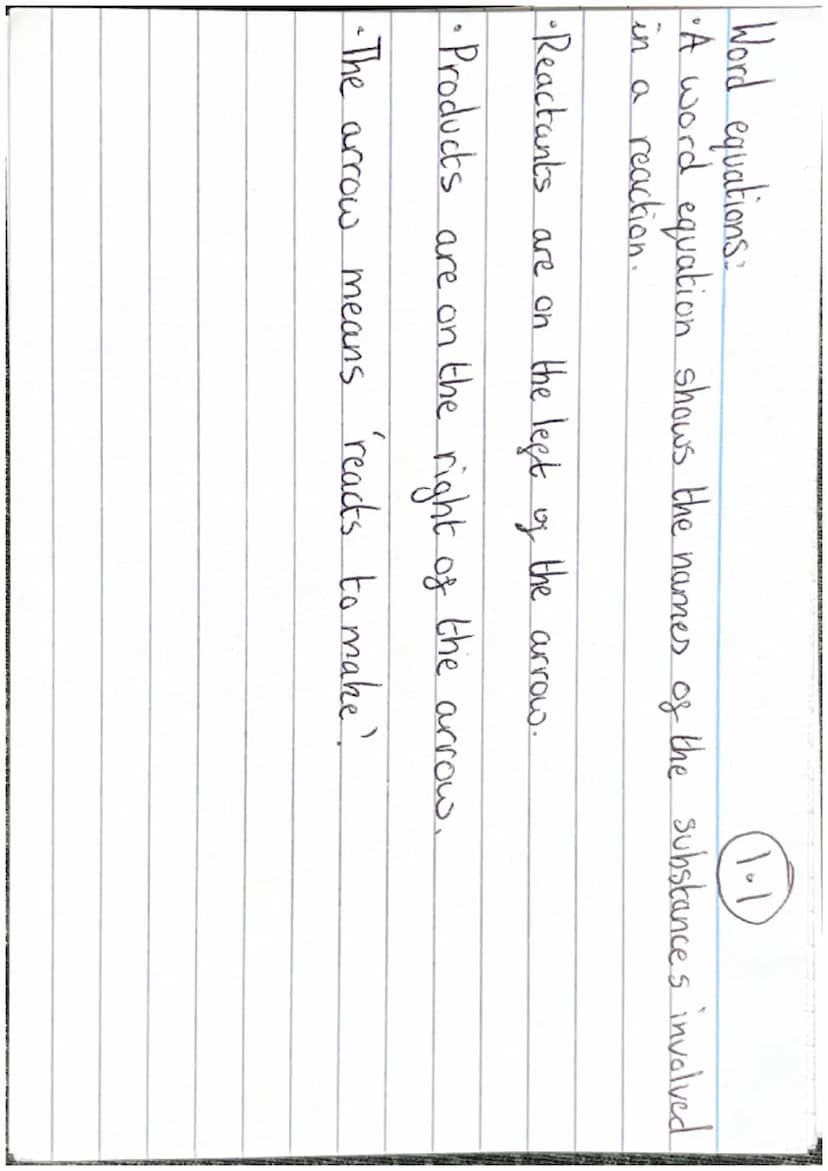 Word equations:
1.1
• A word equation shows the names of the substances involved
in a reaction.
• Reactants are on the left of the arrow.
• Products are on the right of the arrow.
• The arrow means 'reacts to make'.